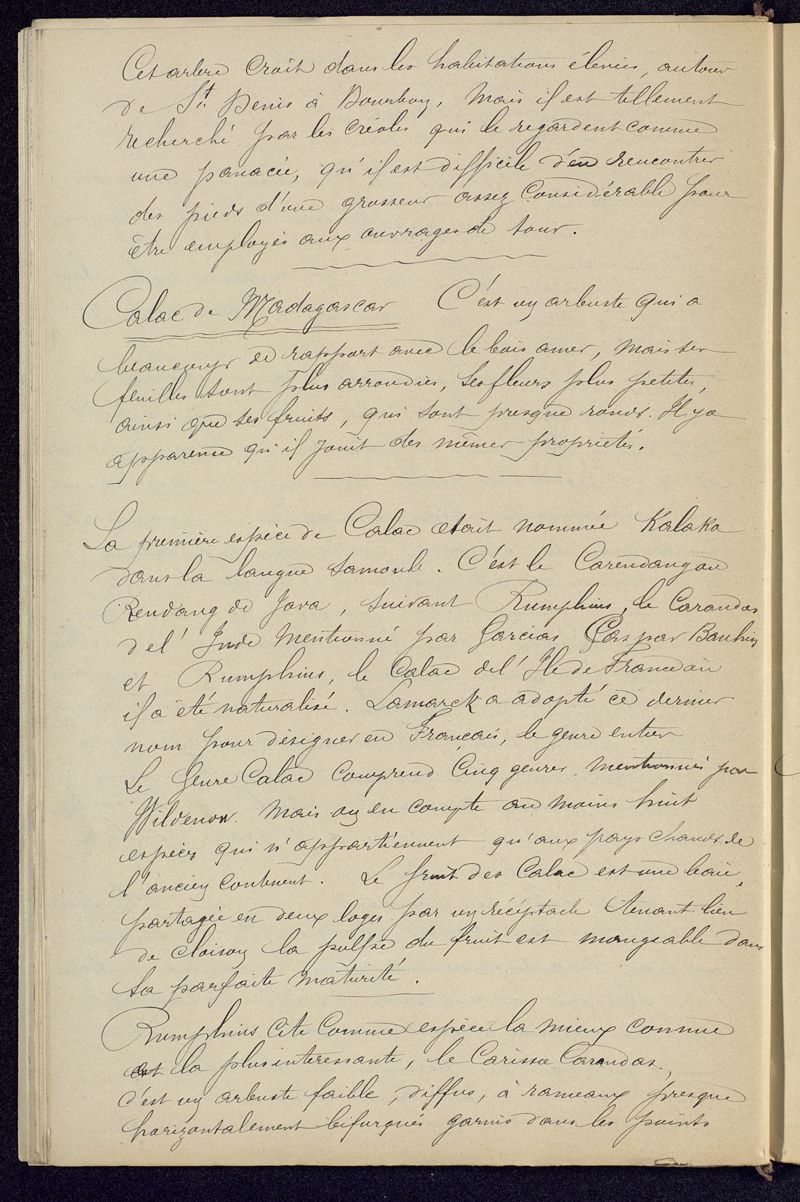 Cet arbre croît dans les habitations élevées, autour
de St Denis à Bourbon, Mais il est tellement
recherché par les créoles qui le regardent comme
une panacée, qu'il est difficile d'en rencontrer
des pieds d'une grosseur assez considérable pour
être employés aux ouvrages de tour.
Calac de Madagascar C'est un arbuste qui a
beaucoup de rapport avec le bois amer, mais ses
feuilles sont plus arrondies, ses fleurs plus petites,
ainsi que ses fruits, qui sont presque ronds. Il y a
apparence qu'il jouit des mêmes propriétés.
La première espèce de Calac etait nommée Kalaka
dans la langue tamoule. C'est le Carendang ou
Rendang de Java, suivant Rumphius, le Carandas
de l'Inde Mentionné par Garcias Gaspar Bauhin
et Rumphius, le Calac de l'Ile de France où
il a été naturalisé. Lamarck a adopté ce dernier
nom pour désigner en Français, le genre entier
Le Genre Calac comprend Cinq genres mentionnés par
Wildenow. Mais on en compte au moins huit
espèces qui n'appartiennent qu'aux pays chauds de
l'ancien continent. Le fruit des Calac est une baie,
partagée en deux loges par un réceptacle tenant lieu
de cloison la pulpe du fruit est mangeable dans
sa parfaite maturité.
Rumphius cite comme espèce la mieux connue
et la plus interessante, le Carissa Carandas.,
c'est un arbuste faible, diffus, à rameaux presque
horizontalement bifurqués garnis dans les points